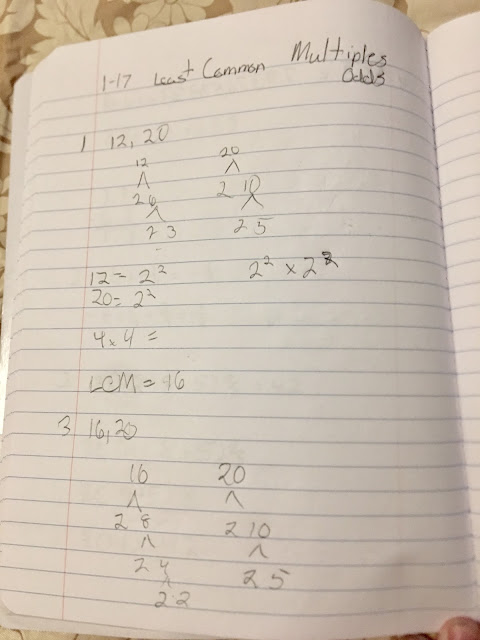 1-17 Least Common Multiples
Odds
1 12, 20
12 20
2 6 2 10
2 3 2 5
12 = 2² 2² x 2²
20 = 2²
4 x 4 =
LCM = 16
3 16, 20
16 20
2 8 2 10
2 4 2 5
2 2